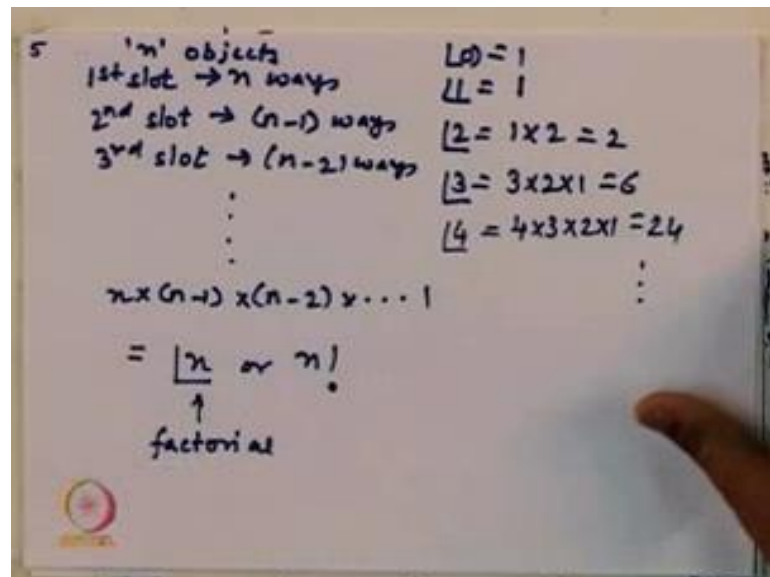 5
'n' objects
1st slot → n ways
2nd slot → (n-1) ways
3rd slot → (n-2) ways
⋮
n × (n-1) × (n-2) × ... 1
= |n or n!
↑
factorial
|0 = 1
|1 = 1
|2 = 1×2 = 2
|3 = 3×2×1 = 6
|4 = 4×3×2×1 = 24
⋮